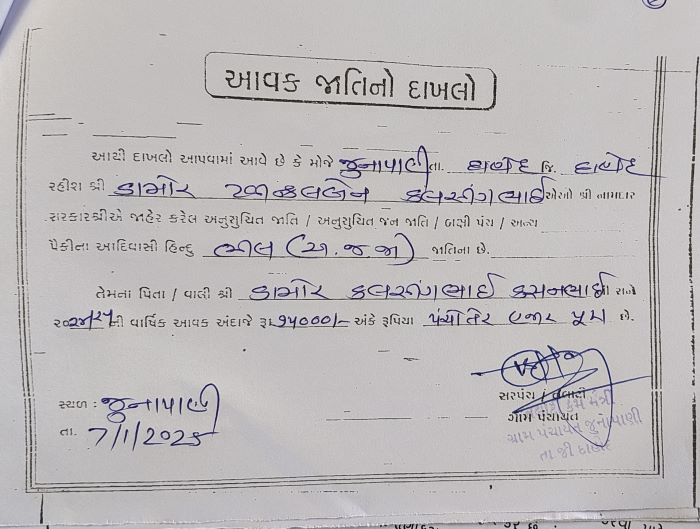 આવક જાતિનો દાખલો
આથી દાખલો આપવામાં આવે છે કે મોજે જુનાપાણી તા. દાહોદ જિ. દાહોદ
રહીશ શ્રી ડામોર કલસીંગભાઈ એઓ શ્રી નામદાર
સરકારશ્રીએ જાહેર કરેલ અનુસુચિત જાતિ / અનુસુચિત જન જાતિ / બક્ષી પંચ / અન્ય
પૈકીના આદિવાસી હિન્દુ ભીલ (અ.જ.જા) જાતિના છે.
તેમના પિતા / વાલી શ્રી ડામોર કલસીંગભાઈ કસનભાઈ સને
૨૦૨૪/૨૫ની વાર્ષિક આવક અંદાજે રૂા. ૭૫૦૦૦/- અંકે રૂપિયા પંચોતેર હજાર પૂરા છે.
સરપંચ / તલાટી
ગ્રામ પંચાયત
ગ્રામ પંચાયત જુનાપાણી
સ્થળ : જુનાપાણી
તા. 7/1/2025